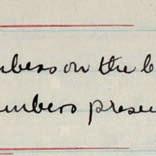 mbers on the b
umbers presen